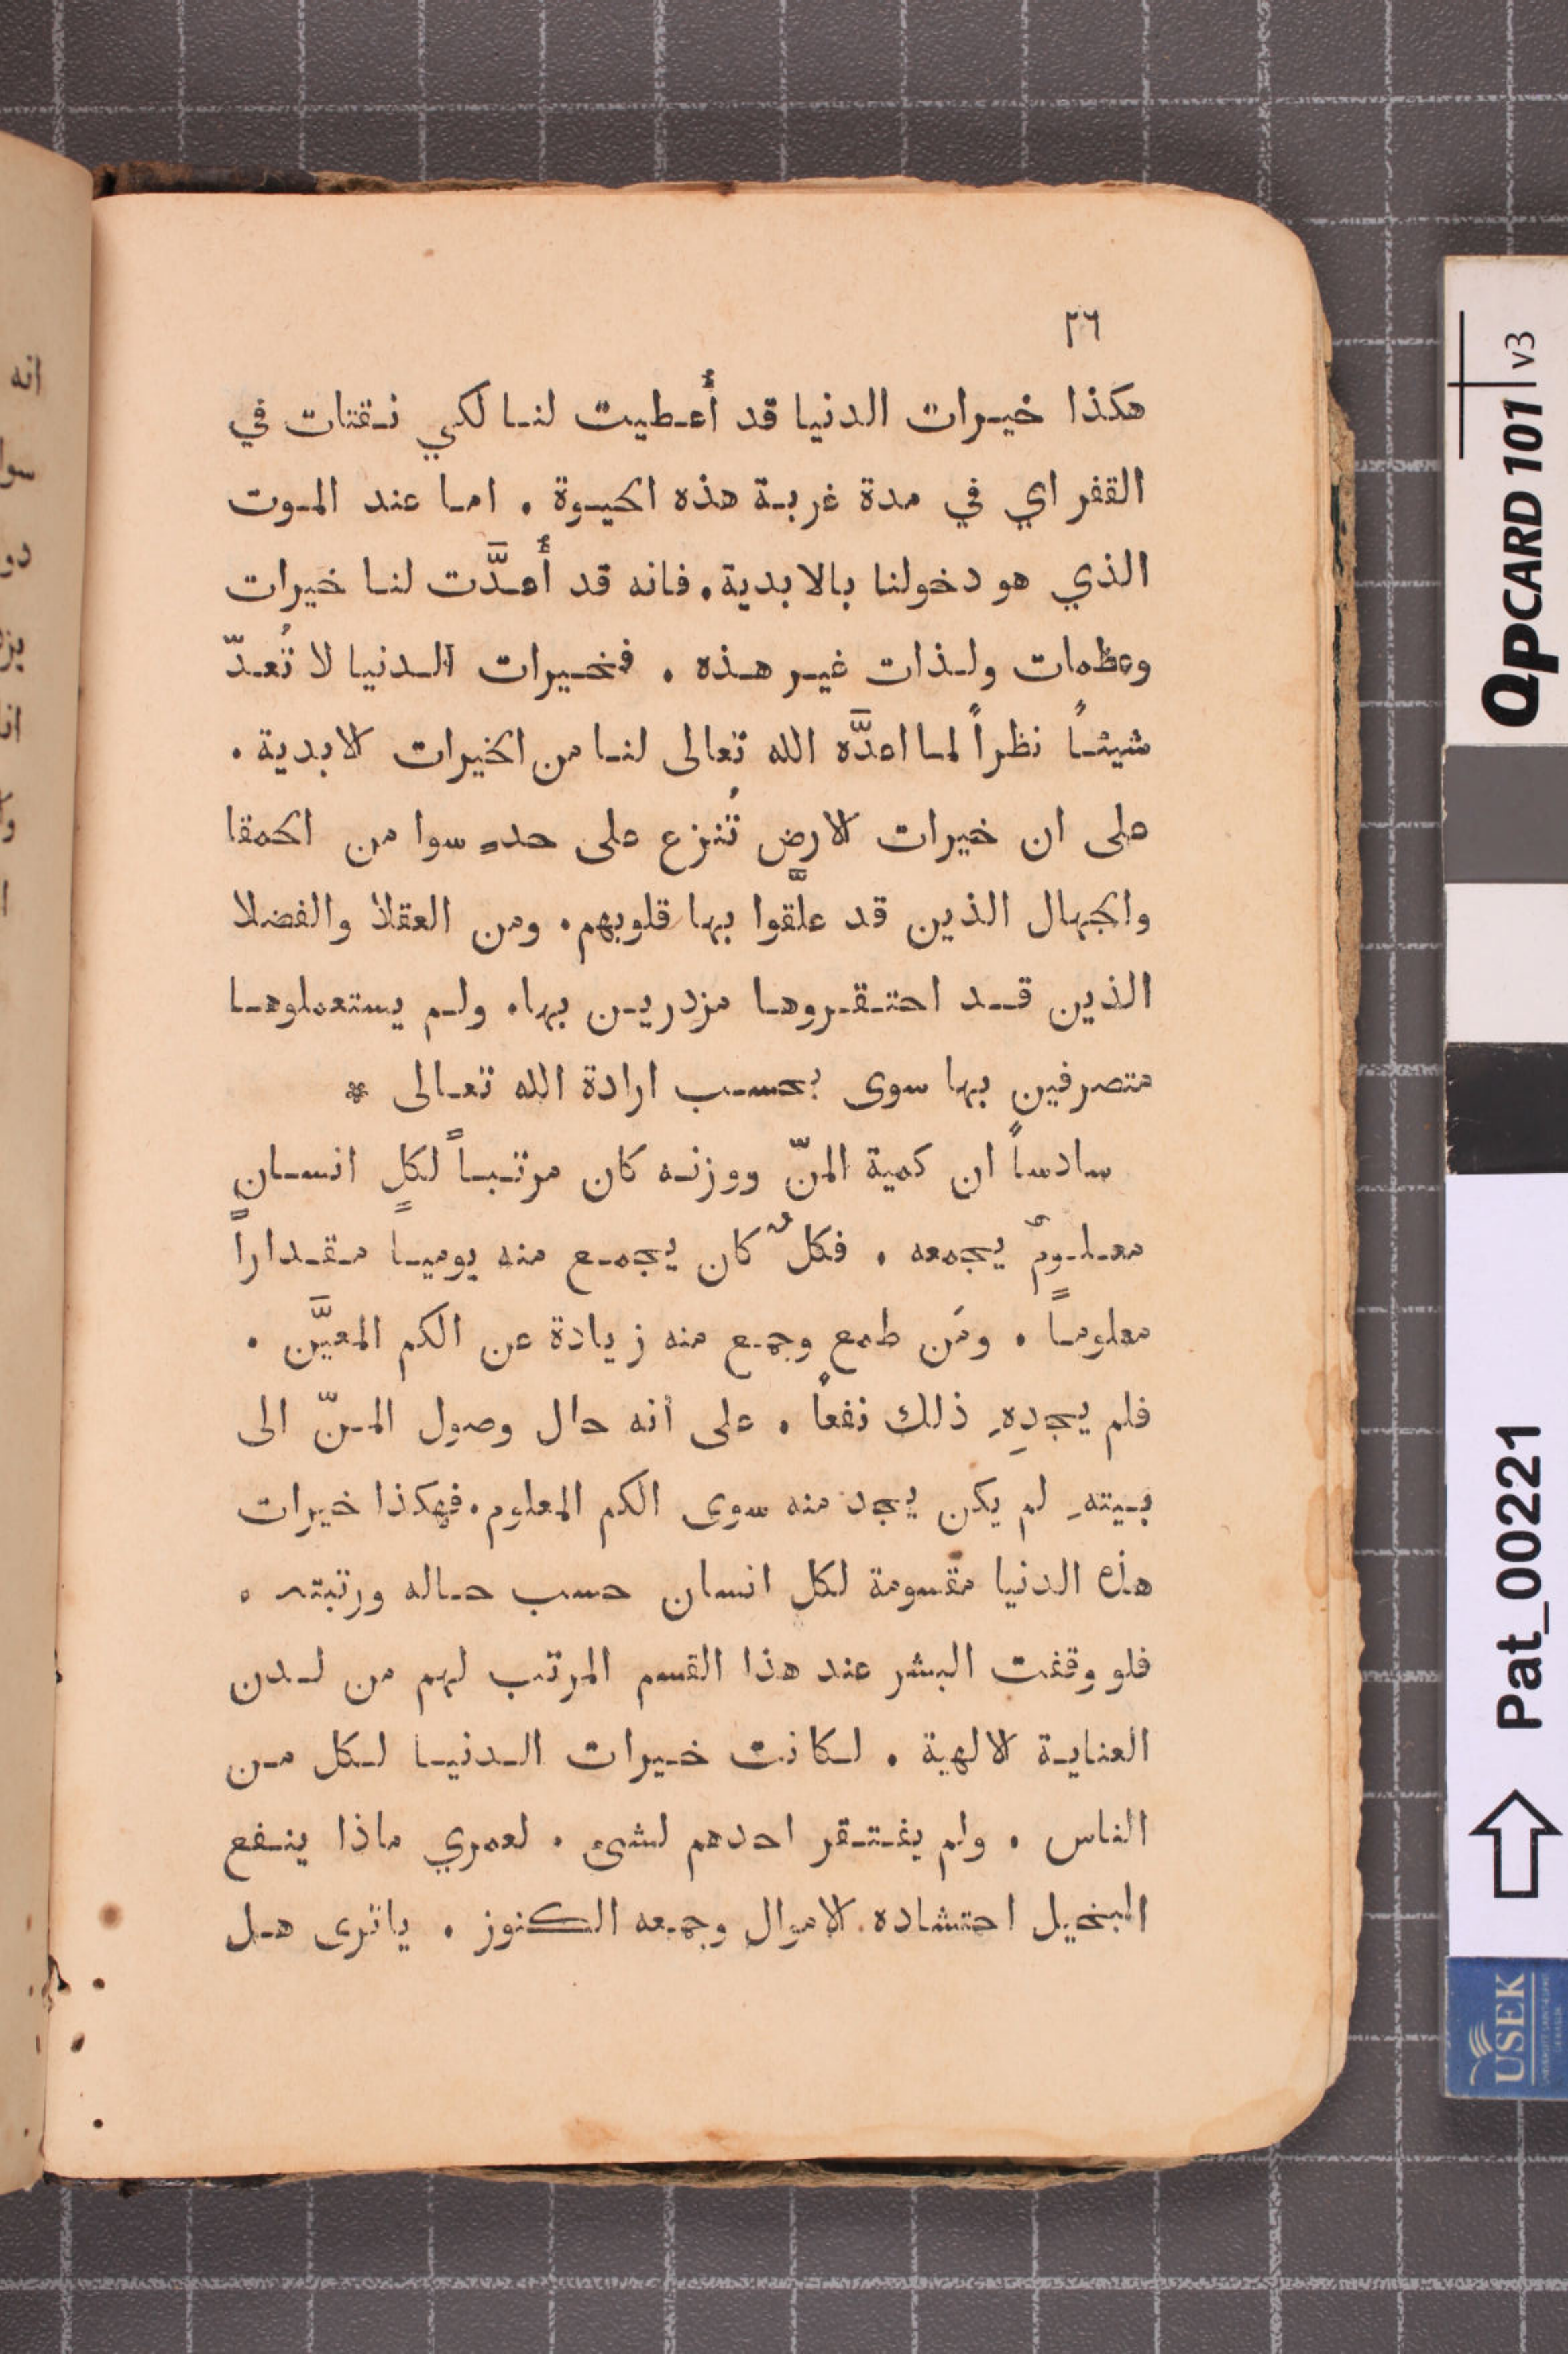 ٢٦
هكذا خيرات الدنيا قد أُعطيت لنا لكي نقتات في
القفر اي في مدة غربة هذه الحيوة . اما عند الموت
الذي هو دخولنا بالابدية . فانه قد أُعدَّت لنا خيرات
وعظمات ولذات غير هذه . فخيرات الدنيا لا تُعدّ
شيئاً نظراً لما اعدَّه الله تعالى لنا من الخيرات الابدية .
على ان خيرات الارض تُنزع على حدٍ سوا من الحمقا
والجهال الذين قد علَّقوا بها قلوبهم . ومن العقلا والفضلا
الذين قد احتقروها مزدرين بها . ولم يستعملوها
متصرفين بها سوى بحسب ارادة الله تعالى *
سادساً ان كمية المنّ ووزنه كان مرتباً لكلٍ انسانٍ
معلومٌ يجمعه . فكلٌ كان يجمع منه يوميا مقداراً
معلوماً . ومَن طمع وجمع منه زيادة عن الكم المعيَّن .
فلم يجدِهِ ذلك نفعاً . على أنه حال وصول المنّ الى
بيتهِ لم يكن يجد منه سوى الكم المعلوم . فهكذا خيرات
هذه الدنيا مقسومة لكل انسان حسب حاله ورتبته .
فلو وقفت البشر عند هذا القسم المرتب لهم من لدن
العناية الالهية . لكانت خيرات الدنيا لكل من
الناس . ولم يفتقر احدهم لشيء . لعمري ماذا ينفع
البخيل احتشاده الاموال وجمعه الكنوز . ياترى هل
انه
QPCARD 101 v3
Pat_00221
USEK